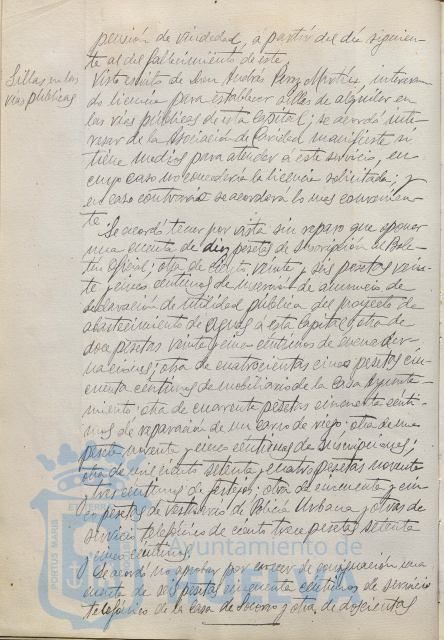 pensión de viudedad, a partir del día siguien-
te al del fallecimiento de este.
Sillas en las
vías públicas
Visto escrito de Don Andrés Pérez Martín, interesan-
do licencia para establecer sillas de alquiler en
las vías públicas de esta Capital; se acordó inte-
resar de la Asociación de Caridad manifieste si
tiene medios para atender a este servicio, en
cuyo caso no concederá la licencia solicitada; y
en caso contrario se acordará lo mas convenien-
te.
Se acordó tener por vista sin reparo que oponer
una cuenta de diez pesetas de suscripción al Bole-
tín Oficial; otra de ciento veinte y seis pesetas vein-
te y cinco céntimos de inserción de anuncio de
declaración de utilidad pública del proyecto de
abastecimiento de aguas a esta Capital; otra de
doce pesetas veinte y cinco céntimos de encuader-
naciones; otra de cuatrocientas cinco pesetas cin-
cuenta céntimos de mobiliario de la Casa Ayunta-
miento; otra de cuarenta pesetas cincuenta cénti-
mos de reparación de un carro de riego; otra de una
peseta noventa y cinco céntimos de suscripciones;
otra de mil ciento setenta y cuatro pesetas noventa
y tres céntimos de festejos; otra de cincuenta y cin-
co pesetas de vestuario de Policía Urbana y otra de
servicio telefónico de ciento trece pesetas setenta
y cinco céntimos.
Se acordó no aprobar por carecer de consignación una
cuenta de seis pesetas cincuenta céntimos de servicio
telefónico de la Casa de Socorro y otra de doscientas
PORTUS MARIS
Ayuntamiento de